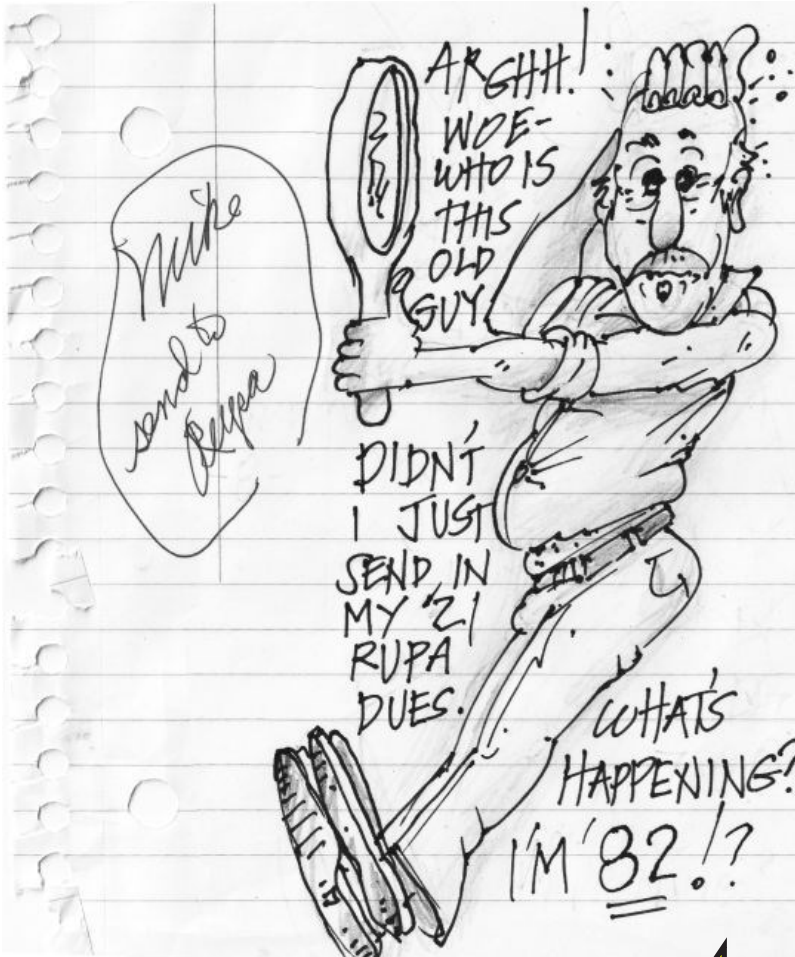 Mike
send to
ARGHH!
WOE-
WHO IS
THIS
OLD
GUY
DIDN'T
I JUST
SEND IN
MY '21
RUPA
DUES.
WHAT'S
HAPPENING?
I'M '82!?